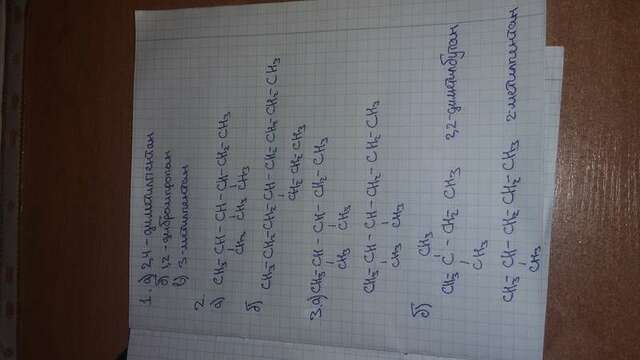 1. а) 2,4-диметилпентан
б) 1,2-дибромпропан
в) 3-метилпентан
2.
а) CH3-CH-CH-CH-CH2-CH3
CH3 CH3 CH3
б)
CH3-CH2-CH2-CH-CH2-CH2-CH2-CH3
CH2-CH2-CH3
3. а) CH3-CH-CH-CH2-CH3
CH3 CH3
CH3-CH-CH-CH2-CH2-CH3
CH3 CH3
б)
CH3
CH3-C-CH2-CH3 2,2-диметилбутан
CH3
CH3-CH-CH2-CH2-CH3 2-метилпентан
CH3